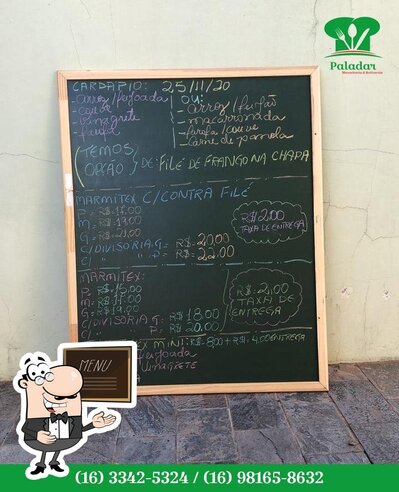 Paladar
CARDÁPIO: 25/11/20
- arroz/feijoada
- couve
- vinagrete
- farofa
OU:
- arroz/feijão
- macarronada
- farofa/couve
- carne de panela
(TEMOS OPÇÃO) DE: FILÉ DE FRANGO NA CHAPA
MARMITEX C/CONTRA FILÉ
P = R$ 16,00
M = R$ 19,00
G = R$ 21,00
C/DIVISORIA G = R$ 20,00
C/ " " P = R$ 22,00
R$ 2,00
TAXA DE ENTREGA
MARMITEX:
P = R$ 15,00
M = R$ 17,00
G = R$ 19,00
C/DIVISORIA G: R$ 18,00
C/ " " P = R$ 20,00
R$ = 2,00
TAXA DE
ENTREGA
EX MINI: R$ = 8,00 + R$ = 4,00 ENTREGA
feijoada
vinagrete
MENU
(16) 3342-5324 / (16) 98165-8632